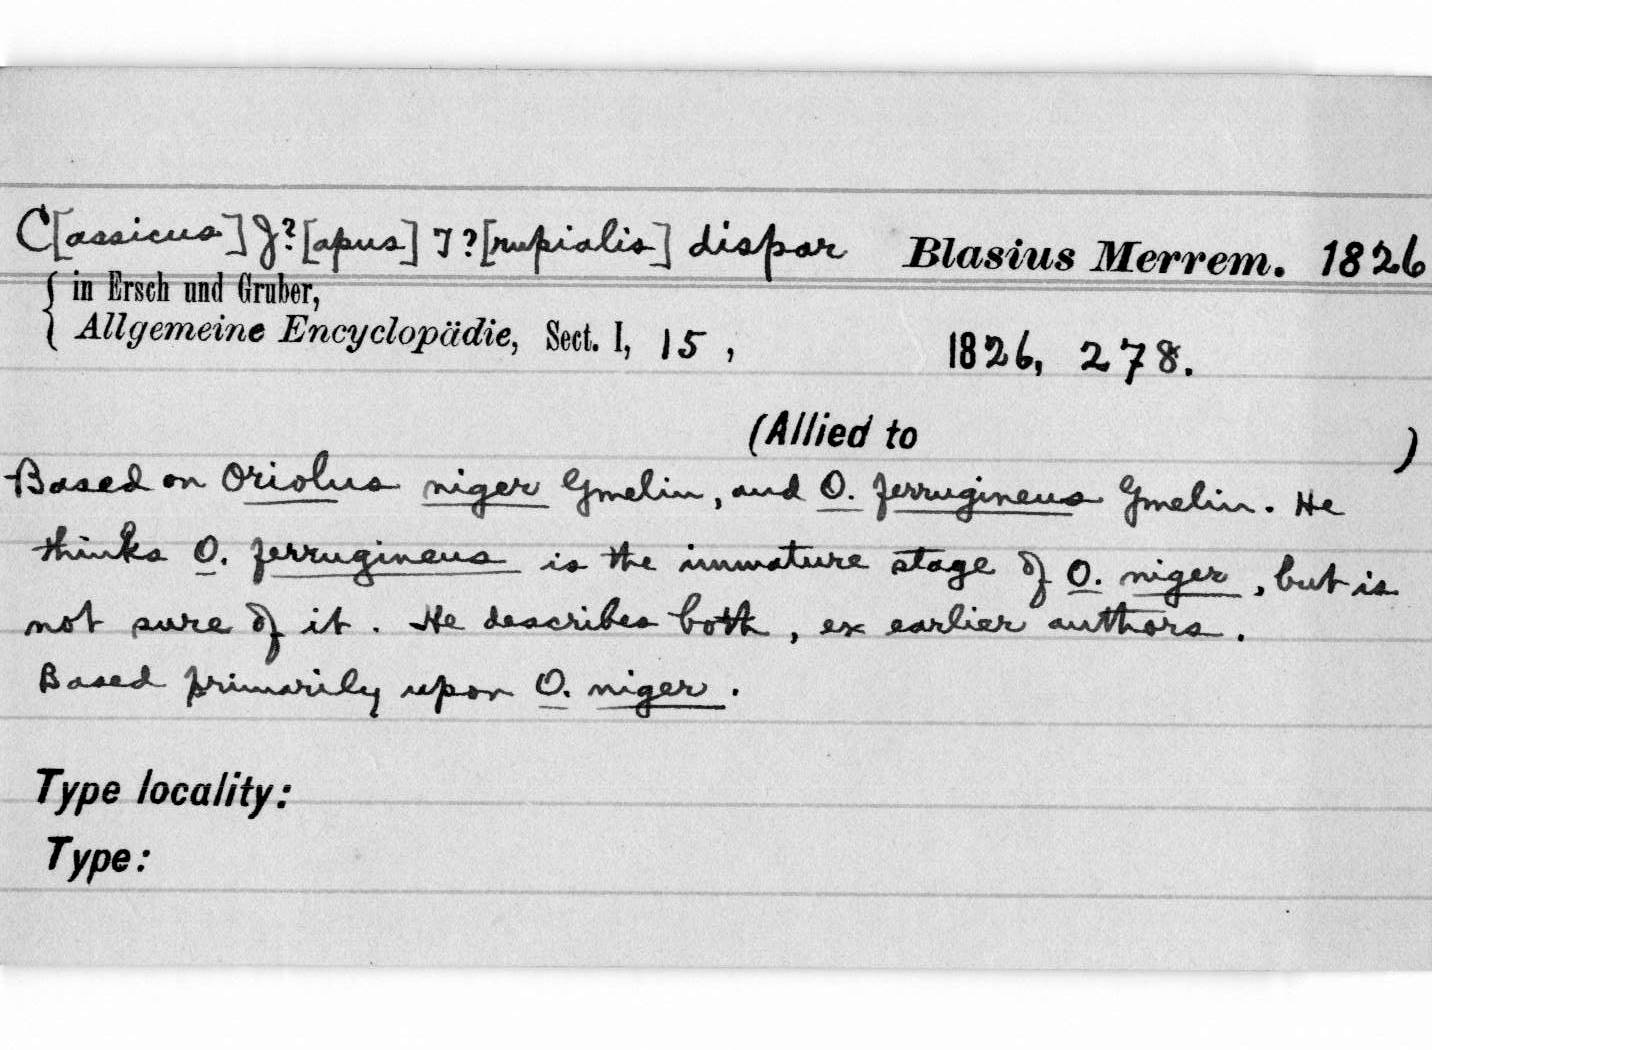 C[assicus] J?[apus] T?[rupialis] dispar Blasius Merrem. 1826
{ in Ersch und Gruber,
Allgemeine Encyclopädie, Sect. I, 15, 1826, 278.
(Allied to )
Based on Oriolus niger Gmelin, and O. ferrugineus Gmelin. He
thinks O. ferrugineus is the immature stage of O. niger, but is
not sure of it. He describes both, ex earlier authors.
Based primarily upon O. niger.
Type locality:
Type: